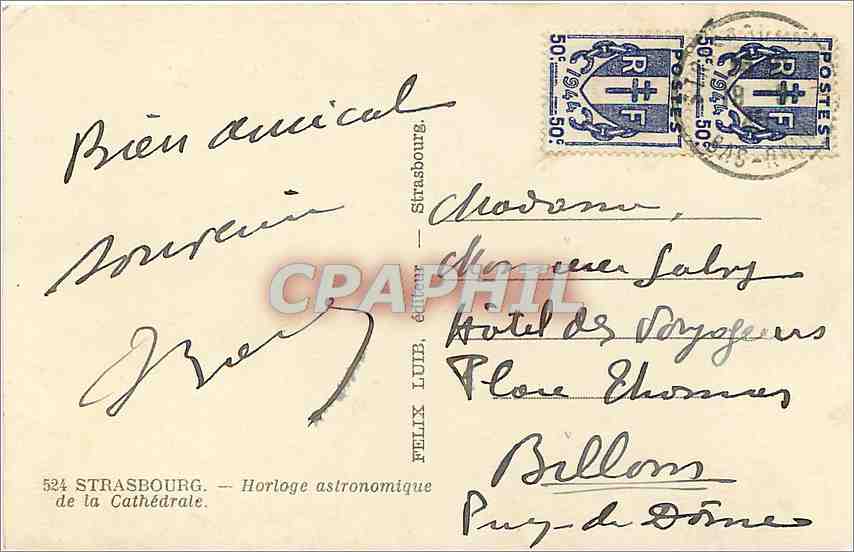 Bien amical
souvenir
524 STRASBOURG. — Horloge astronomique
de la Cathédrale.
FELIX LUIB, éditeur — Strasbourg.
CPAPHIL
50c 1944 50c
RF
POSTES
50c 1944 50c
RF
POSTES
BAS-RHIN
Madame,
Monsieur Salvy
Hôtel des Voyageurs
Place Thomas
Billom
Puy-de Dôme